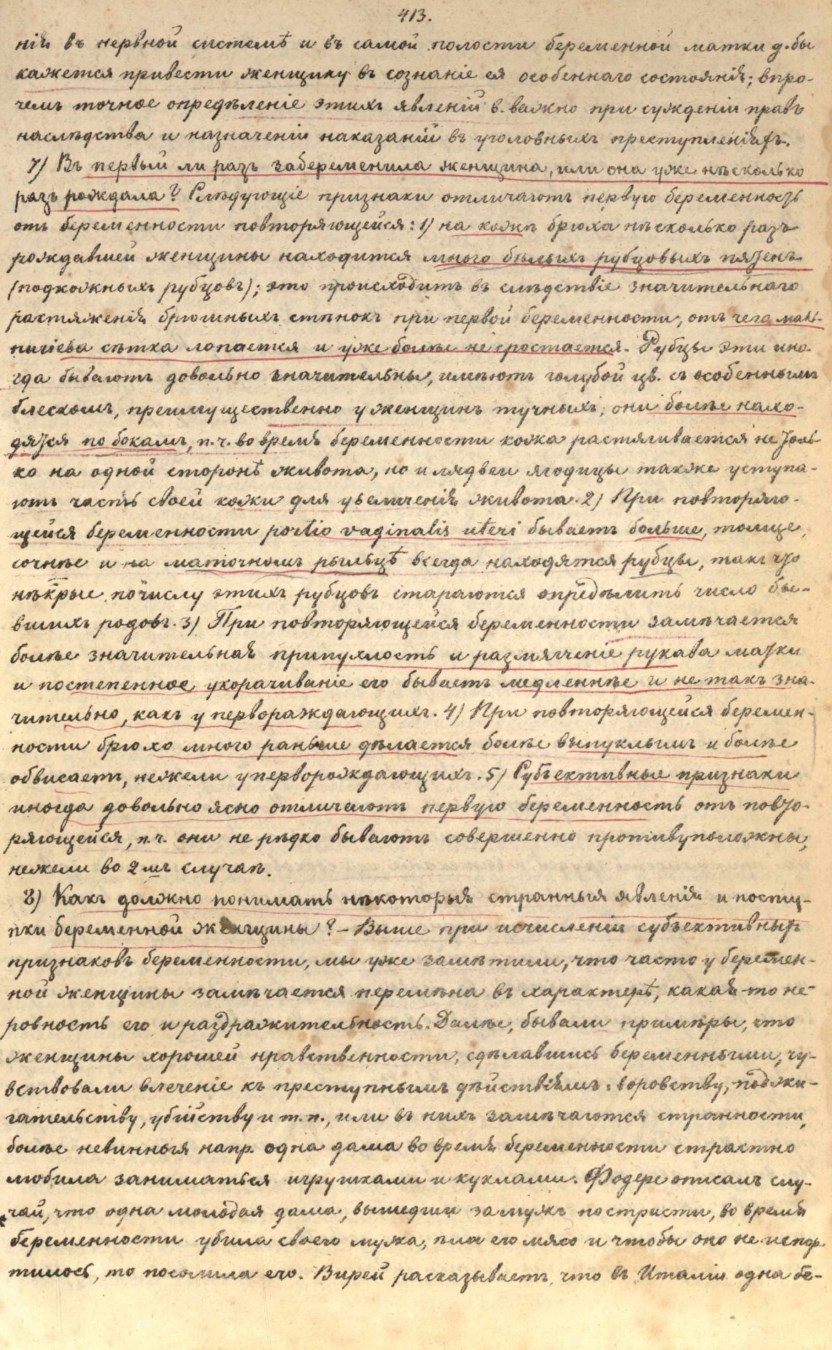 413.
нія въ нервной системѣ и въ самой полости беременной матки д. бы
кажется привести женщину въ сознаніе ея особеннаго состоянія; впро-
чемъ точное опредѣленіе этихъ явленій в. важно при сужденіи правъ
наслѣдства и назначеніи наказаній въ уголовныхъ преступленіяхъ.
7) Въ первый ли разъ забеременила женщина, или она уже нѣсколько
разъ рождала? Слѣдующіе признаки отличаютъ первую беременность
отъ беременности повторяющейся: 1) на кожѣ брюха нѣсколько разъ
рождавшей женщины находится много бѣлыхъ рубцовыхъ пятенъ
(подкожныхъ рубцовъ); это происходитъ въ слѣдствіе значительнаго
растяженія брюшныхъ стѣнокъ при первой беременности, отъ чего маль-
пигіева сѣтка лопается и уже болѣе не сростается. Рубцы эти ино-
гда бываютъ довольно значительны, имѣютъ голубой цв. съ особеннымъ
блескомъ, преимущественно у женщинъ тучныхъ; они болѣе нахо-
дятся по бокамъ, п. ч. во время беременности кожа растягивается не толь-
ко на одной сторонѣ живота, но и лядвеи ягодицы также уступа-
ютъ часть своей кожи для увеличенія живота. 2) При повторяю-
щейся беременности portio vaginalis uteri бываетъ больше, толще,
сочнѣе и на маточномъ рыльцѣ всегда находятся рубцы, такъ что
нѣкрые по числу этихъ рубцовъ стараются опредѣлить число бы-
вшихъ родовъ. 3) При повторяющейся беременности замѣчается
болѣе значительная припухлость и размягченіе рукава матки
и постепенное укорачиваніе его бываетъ медленнѣе и не такъ зна-
чительно, какъ у первораждающихъ. 4) При повторяющейся беремен-
ности брюхо много раньше дѣлается болѣе выпуклымъ и болѣе
обвисаетъ, нежели у перворождающихъ. 5) Субъективные признаки
иногда довольно ясно отличаютъ первую беременность отъ повто-
ряющейся, п. ч. они не рѣдко бываютъ совершенно противуположны,
нежели во 2мъ случаѣ.
8) Какъ должно понимать нѣкоторыя странныя явленія и посту-
пки беременной женщины? – Выше при исчисленіи субъективныхъ
признаковъ беременности, мы уже замѣтили, что часто у беремен-
ной женщины замѣчается перемѣна въ характерѣ, какая-то не-
ровность его и раздражительность. Далѣе, бывали примѣры, что
женщины хорошей нравственности, сдѣлавшись беременными, чу-
вствовали влеченіе къ преступнымъ дѣйствіямъ: воровству, поджи-
гательству, убійству и т. п., или въ нихъ замѣчаются странности,
болѣе невинныя напр. одна дама во время беременности страстно
любила заниматься игрушками и куклами. Фодере описалъ слу-
чай, что одна молодая дама, вышедши замужъ по страсти, во время
беременности убила своего мужа, ѣла его мясо и чтобы оно не испор-
тилось, то посолила его. Вирей расказываетъ, что въ Италіи одна бе-